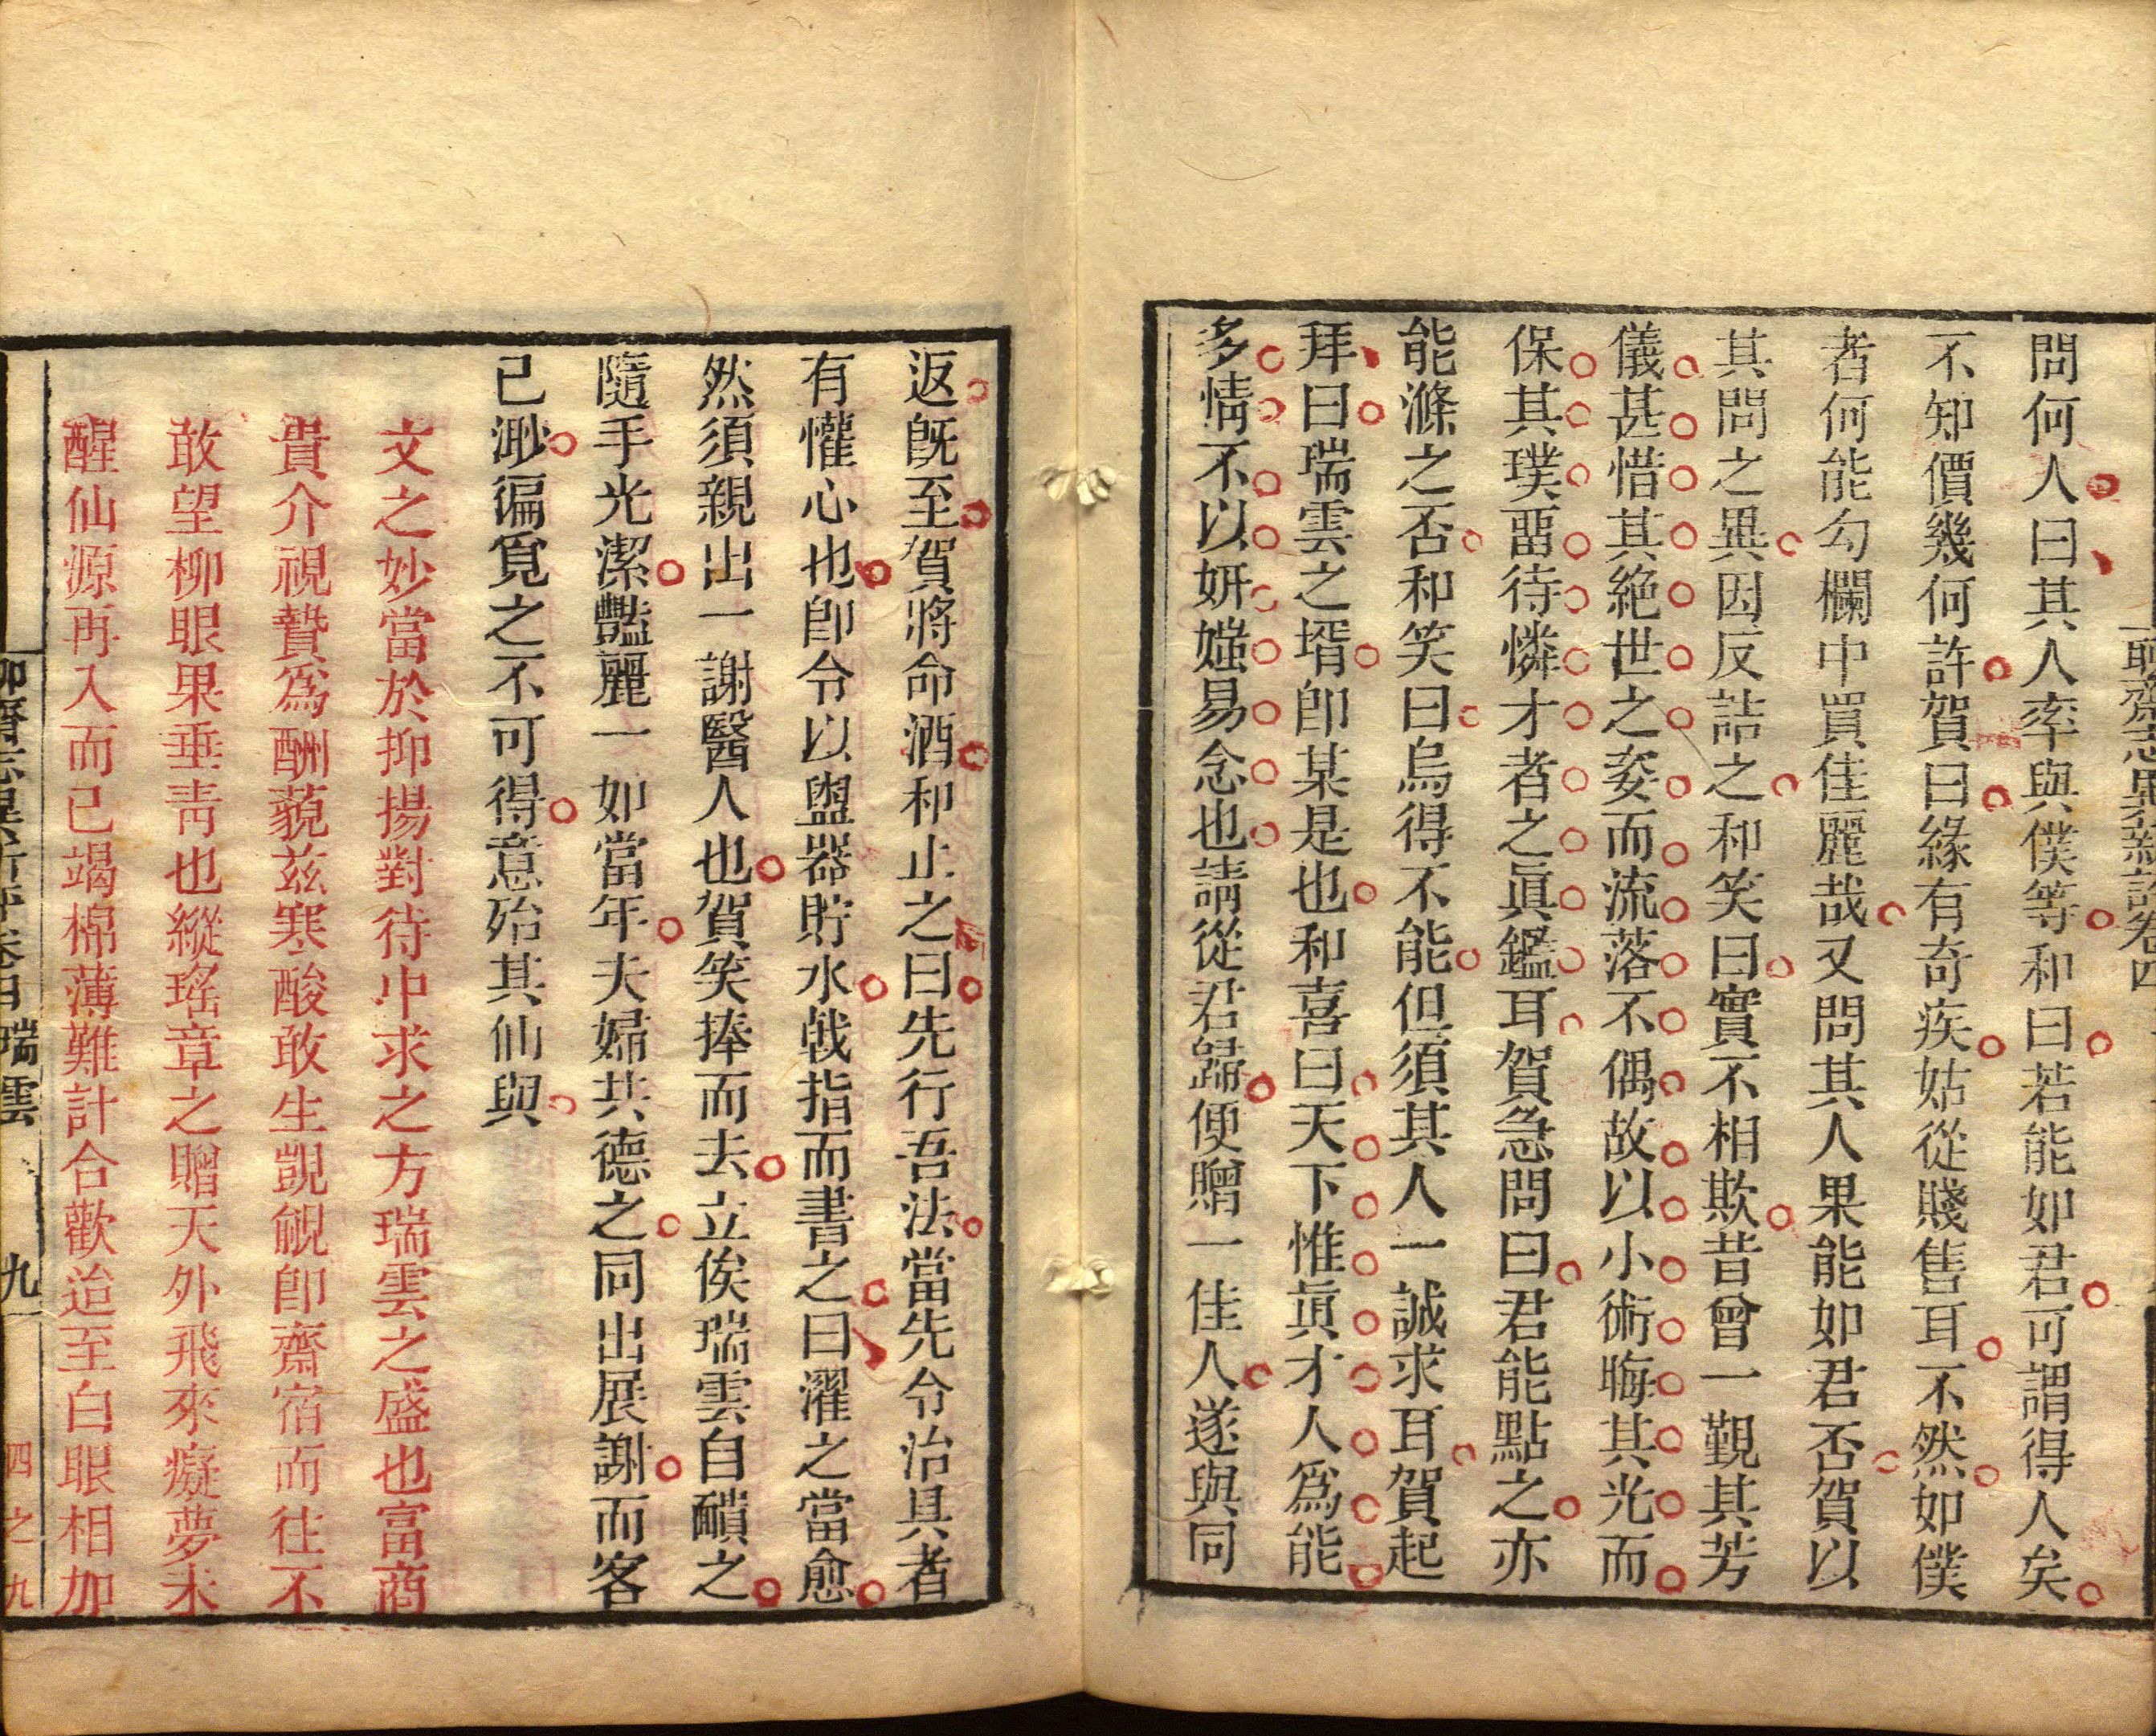 問何人曰其人率與僕等和曰若能如君可謂得人矣
不知價幾何許賀曰緣有奇疾姑從賤售耳不然如僕
者何能勾欄中買佳麗哉又問其人果能如君否賀以
其問之異因反詰之和笑曰實不相欺昔曾一覲其芳
儀甚惜其絕世之姿而流落不偶故以小術晦其光而
保其璞畱待憐才者之眞鑑耳賀急問曰君能點之亦
能滌之否和笑曰烏得不能但須其人一誠求耳賀起
拜曰瑞雲之壻卽某是也和喜曰天下惟眞才人爲能
多情不以妍媸易念也請從君歸便贈一佳人遂與同
返旣至賀將命酒和止之曰先行吾法當先令治具者
有懽心也卽令以盥器貯水戟指而書之曰濯之當愈
然須親出一謝醫人也賀笑捧而去立俟瑞雲自靧之
隨手光潔豔麗一如當年夫婦共德之同出展謝而客
已渺徧覓之不可得意殆其仙與
文之妙當於抑揚對待中求之方瑞雲之盛也富商
貴介視贄爲酬藐茲寒酸敢生覬覦卽齋宿而往不
敢望柳眼果垂靑也縱瑤章之贈天外飛來癡夢未
醒仙源再入而已竭棉薄難計合歡迨至白眼相加
聊齋志異新評卷四 瑞雲 九
四之九